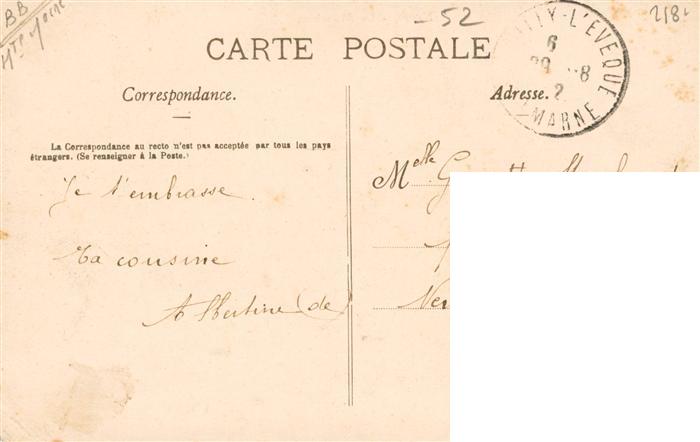 BB
Hte Marne
- 52
218-
CARTE POSTALE
L'EVEQUE
6
MARNE
Correspondance.
Adresse.
La Correspondance au recto n'est pas acceptée par tous les pays
étrangers. (Se renseigner à la Poste.)
Melle
Je t'embrasse
Ta cousine
Albertine (de)